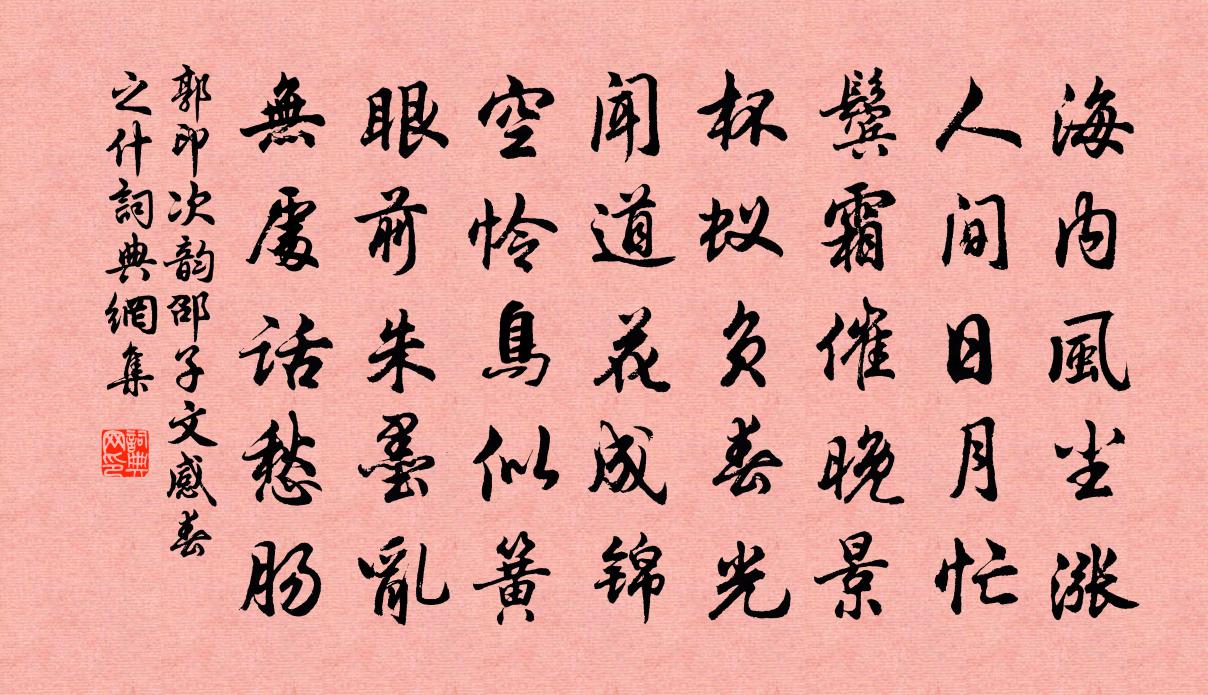 海内風尘漲
人间日月忙
鬓霜催晚景
杯蚁负春光
闻道花成锦
空怜鳥似簧
眼前朱墨亂
無處话愁肠
郭印次韵邵子文感春
之什詞典網集
詞典
网印